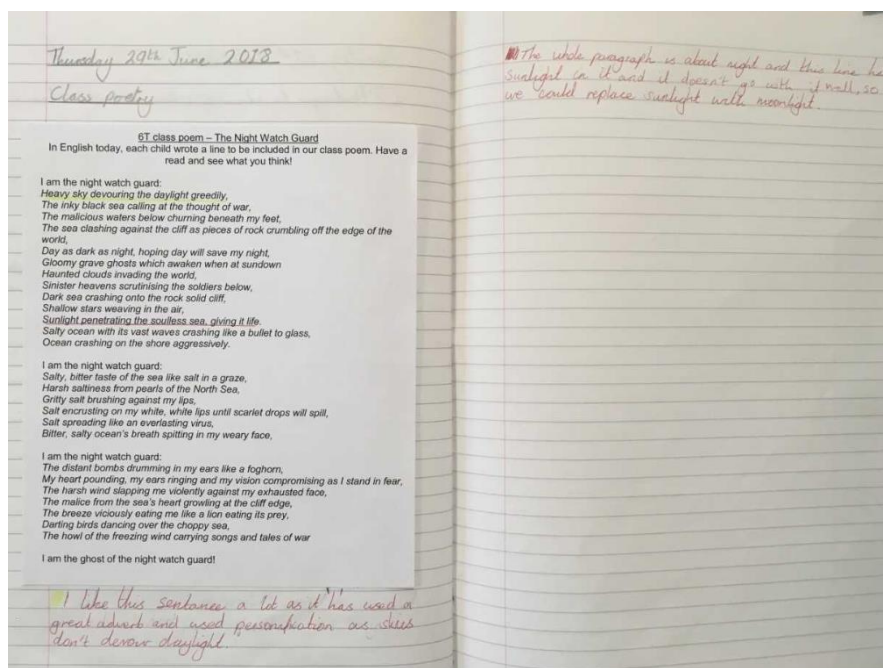 Thursday 29th June 2018
Class poetry
6T class poem – The Night Watch Guard
In English today, each child wrote a line to be included in our class poem. Have a
read and see what you think!
I am the night watch guard:
Heavy sky devouring the daylight greedily,
The inky black sea calling at the thought of war,
The malicious waters below churning beneath my feet,
The sea clashing against the cliff as pieces of rock crumbling off the edge of the
world,
Day as dark as night, hoping day will save my night,
Gloomy grave ghosts which awaken when at sundown
Haunted clouds invading the world,
Sinister heavens scrutinising the soldiers below,
Dark sea crashing onto the rock solid cliff,
Shallow stars weaving in the air,
Sunlight penetrating the soulless sea, giving it life.
Salty ocean with its vast waves crashing like a bullet to glass,
Ocean crashing on the shore aggressively.
I am the night watch guard:
Salty, bitter taste of the sea like salt in a graze,
Harsh saltiness from pearls of the North Sea,
Gritty salt brushing against my lips,
Salt encrusting on my white, white lips until scarlet drops will spill,
Salt spreading like an everlasting virus,
Bitter, salty ocean's breath spitting in my weary face,
I am the night watch guard:
The distant bombs drumming in my ears like a foghorn,
My heart pounding, my ears ringing and my vision compromising as I stand in fear,
The harsh wind slapping me violently against my exhausted face,
The malice from the sea's heart growling at the cliff edge,
The breeze viciously eating me like a lion eating its prey,
Darting birds dancing over the choppy sea,
The howl of the freezing wind carrying songs and tales of war
I am the ghost of the night watch guard!
I like this sentance a lot as it has used a
great adverb and used personification as skies
don't devour daylight.
The whole paragraph is about night and this line has
sunlight in it and it doesn't go with it well, so
we could replace sunlight with moonlight.